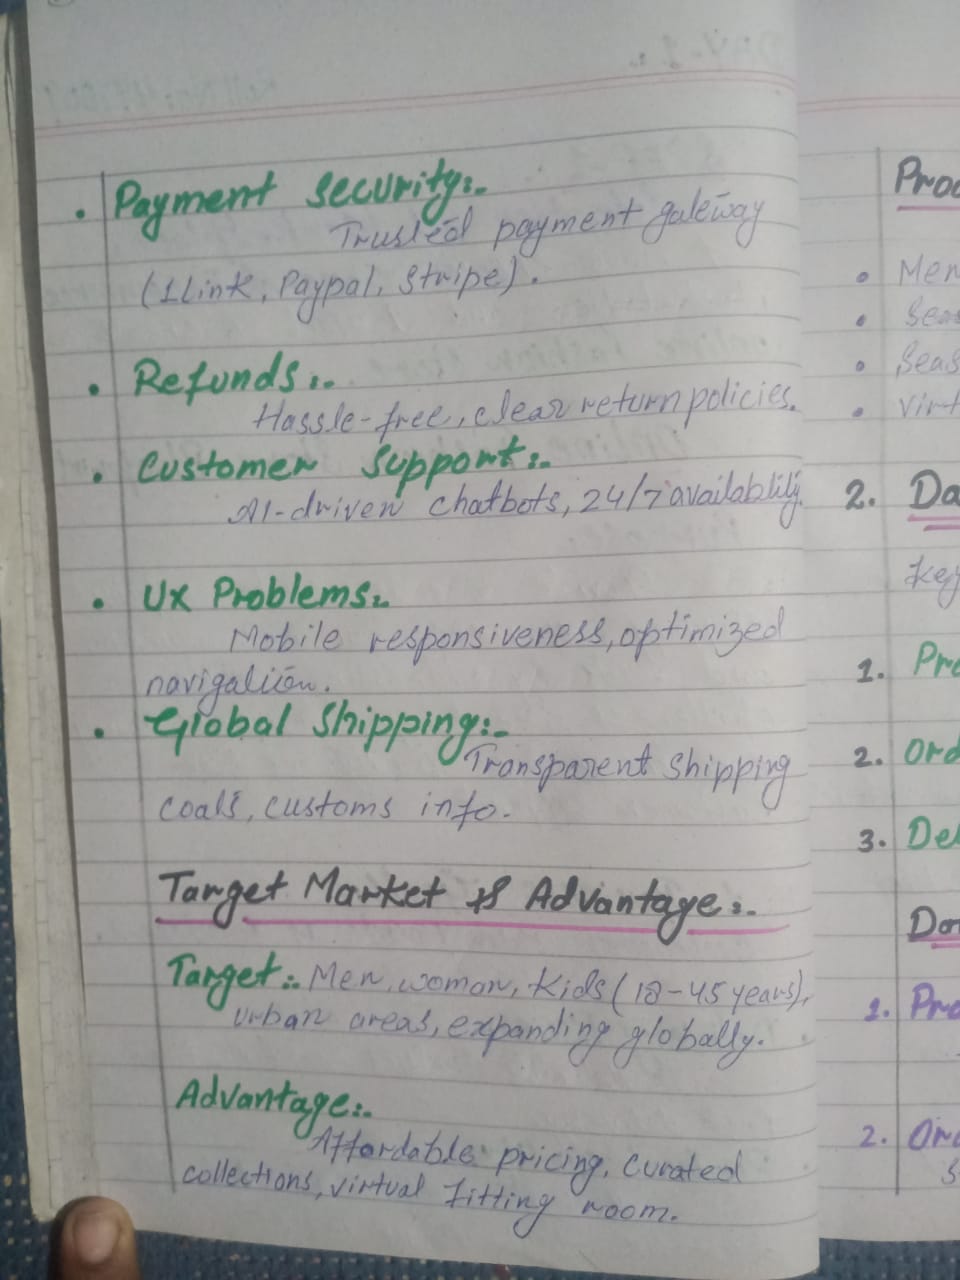 Payment Security:-
Trusted payment gateway
(1Link, Paypal, Stripe).
Refunds:-
Hassle-free, clear return policies.
Customer Support:-
AI-driven chatbots, 24/7 availablility.
UX Problems:-
Mobile responsiveness, optimized
navigation.
Global Shipping:-
Transparent Shipping
coals, customs info.
Target Market & Advantage:-
Target:- Men, woman, Kids (18-45 years),
urban areas, expanding globally.
Advantage:-
Affordable pricing, curated
collections, virtual fitting room.
Men
2.
Key
1.
2. Ord
3. Del
1.
2. Ord